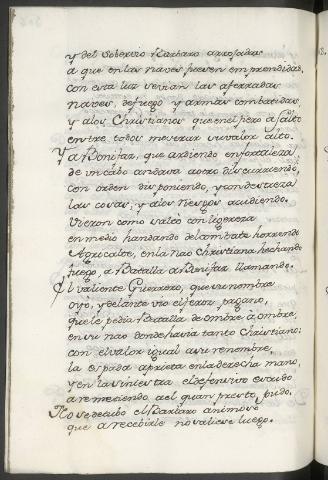 y del soberuio Barbaro arrojadas
a que en las naves fuesen emprendidas,
con esta luz venian las aferradas
naves de fuego y armas combatidas,
y a los Christianos que en el fiero asalto
entre todos mostrar su valor alto.
Y a Bonifaz, que ardiendo en fortaleza
de un cabo andava a otro discurriendo,
con orden disponiendo, y con destreza
las cosas, y a los riesgos acudiendo.
Vieron como saltó con ligereza
en medio handando del combate horrendo
Agricalte, en la nao Christiana hechando
fuego, a Batalla a Bonifaz llamando.
El valiente Guerrero, que su nombre
oyó, y delante vio el feroz pagano,
que le pedia Batalla de ombre, a ombre,
en su nao donde havia tanto Christiano:
con el valor igual a su renombre,
la espada aprieta en la derecha mano,
y en la siniestra el defensivo escudo
arremetiendo a el quan presto pudo.
No se descuido el Barbaro animoso
que a recebirle no saliese luego.